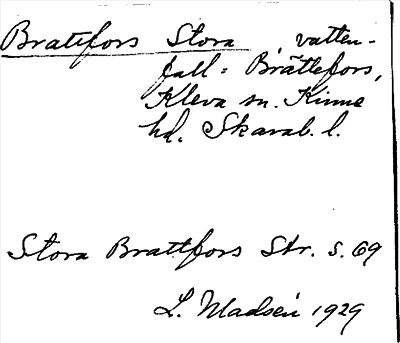 Brattfors Stora, vatten-
fall = Brättefors,
Kleva sn. Kinne
hd. Skarab. l.
Stora Brattfors Str. s. 69
L. Madsén 1929